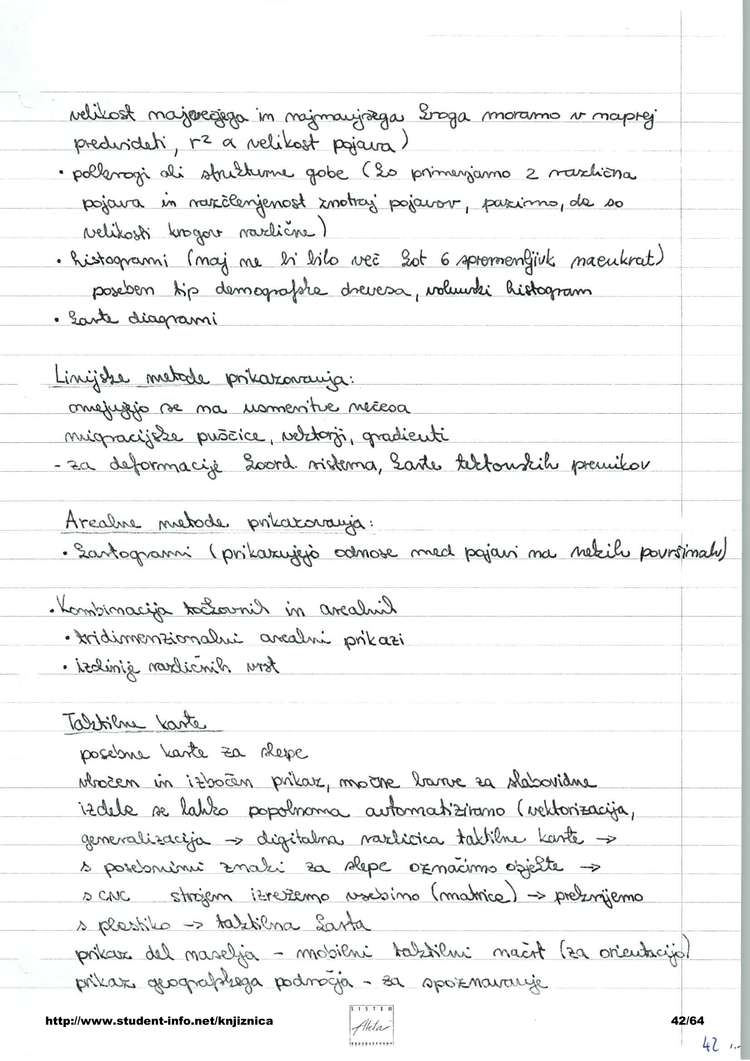 velikost največjega in najmanjšega kroga moramo v naprej
predvideti, r² α velikost pojava)
• polkrogi ali strukturne gobe (ko primerjamo 2 različna
pojava in razčlenjenost znotraj pojavov, pazimo, da so
velikosti krogov različne)
• histogrami (naj ne bi bilo več kot 6 spremenljivk naenkrat)
poseben tip demografska drevesa, volumski histogram
• karte diagrami
Linijske metode prikazovanja:
omejujejo se na usmeritve nečesa
migracijske puščice, vektorji, gradienti
- za deformacije koord. sistema, karte tektonskih premikov
Arealne metode prikazovanja:
• kartogrami (prikazujejo odnose med pojavi na nekih površinah)
• Kombinacija točkovnih in arealnih
• tridimenzionalni arealni prikazi
• izolinije različnih vrst
Taktilne karte
posebne karte za slepe
vbočen in izbočen prikaz, močne barve za slabovidne
izdela se lahko popolnoma avtomatizirano (vektorizacija,
generalizacija → digitalna različica taktilne karte →
s posebnimi znaki za slepe označimo objekte →
s CNC strojem izrežemo vsebino (matrica) →
s plastiko → taktilna karta
prikaz del naselja - mobilni taktilni načrt (za orientacijo)
prikaz geografskega področja - za spoznavanje
http://www.student-info.net/knjiznica
SISTEM
42/64
42